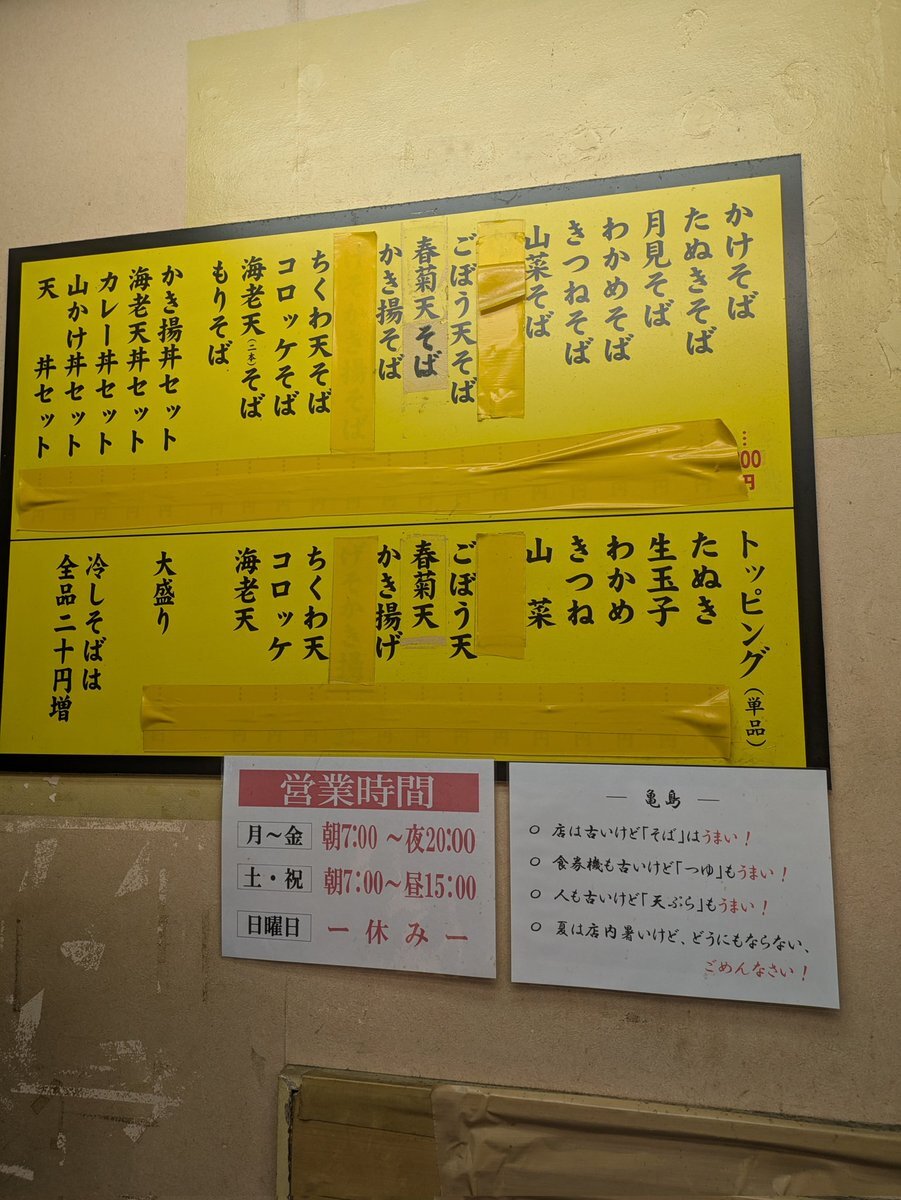 かけそば
たぬきそば
月見そば
わかめそば
きつねそば
山菜そば
ごぼう天そば
春菊天そば
かき揚そば
ちくわ天そば
コロッケそば
海老天(二本)そば
もりそば
かき揚丼セット
海老天丼セット
カレー丼セット
山かけ丼セット
天 丼セット
トッピング(単品)
たぬき
生玉子
わかめ
きつね
山 菜
ごぼう天
春菊天
かき揚げ
げそかき揚
ちくわ天
コロッケ
海老天
大盛り
冷しそばは
全品二十円増
営業時間
月～金 朝7:00 ～夜20:00
土・祝 朝7:00～昼15:00
日曜日 ー 休 み ー
― 亀島 ―
○ 店は古いけど「そば」はうまい！
○ 食券機も古いけど「つゆ」もうまい！
○ 人も古いけど「天ぷら」もうまい！
○ 夏は店内暑いけど、どうにもならない、
ごめんなさい！